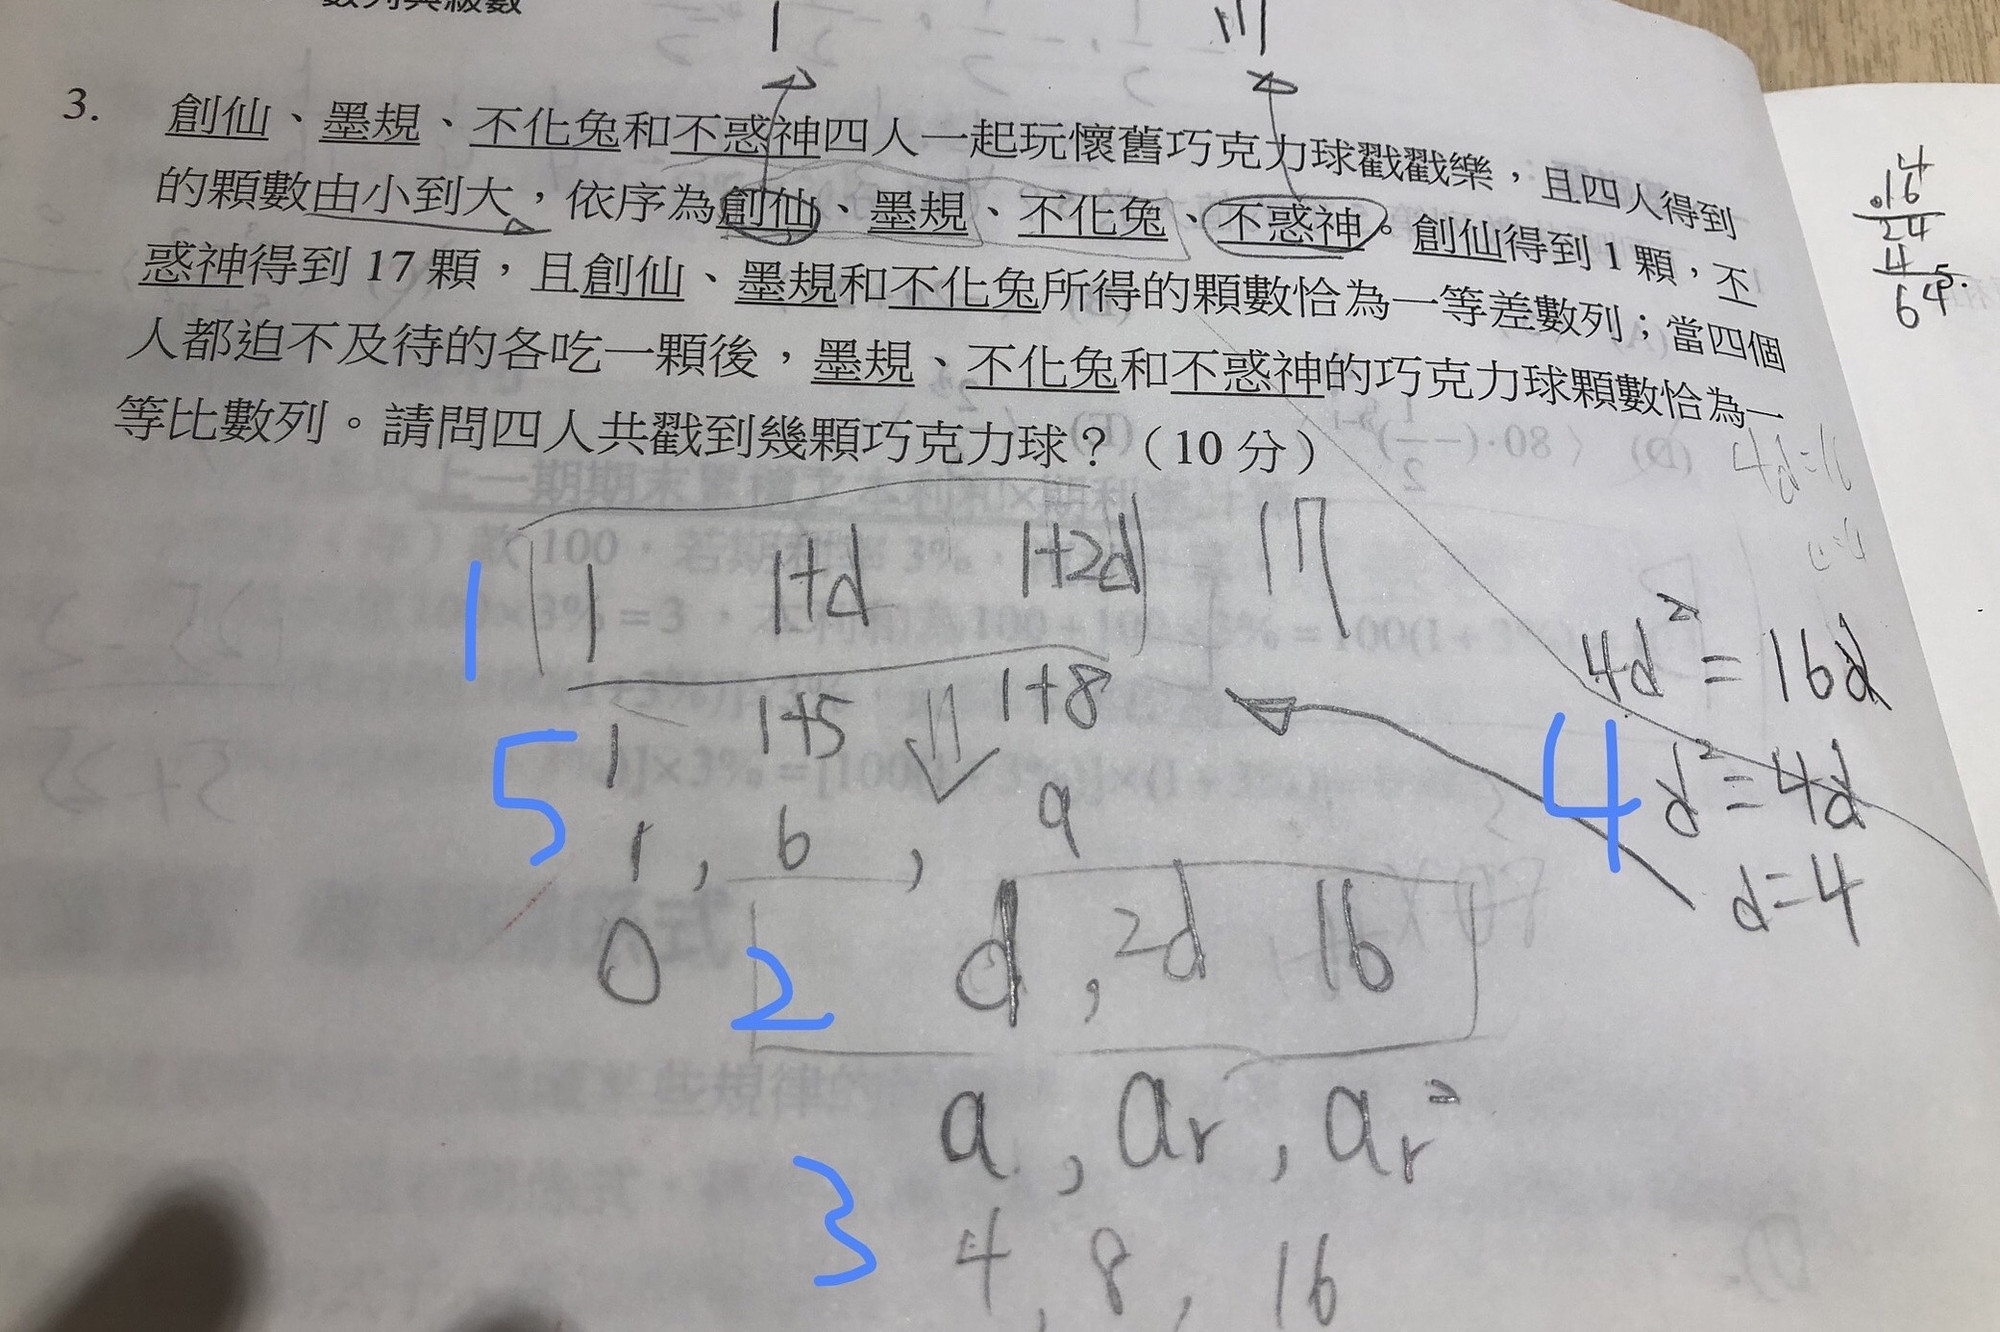 數列與級數
1 17
3. 創仙、墨規、不化兔和不惑神四人一起玩懷舊巧克力球戳戳樂，且四人得到
的顆數由小到大，依序為創仙、墨規、不化兔、不惑神。創仙得到1顆，不
惑神得到17顆，且創仙、墨規和不化兔所得的顆數恰為一等差數列；當四個
人都迫不及待的各吃一顆後，墨規、不化兔和不惑神的巧克力球顆數恰為一
等比數列。請問四人共戳到幾顆巧克力球？（10分）
4
16
24
4
64
4d=16
1 1 1+d 1+2d 17
4d²=16d
5 1 1+5 1+8
4 d²=4d
1, 6, 9
d=4
0 2 d, 2d 16
a, ar, ar²
3
4, 8, 16